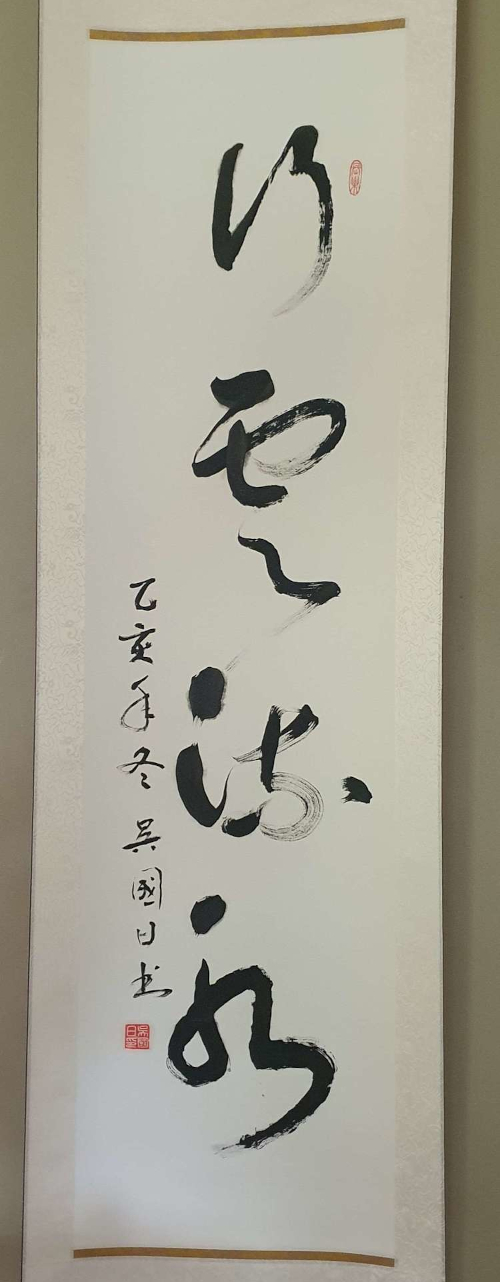 行雲流水
乙亥年冬 吳國日書